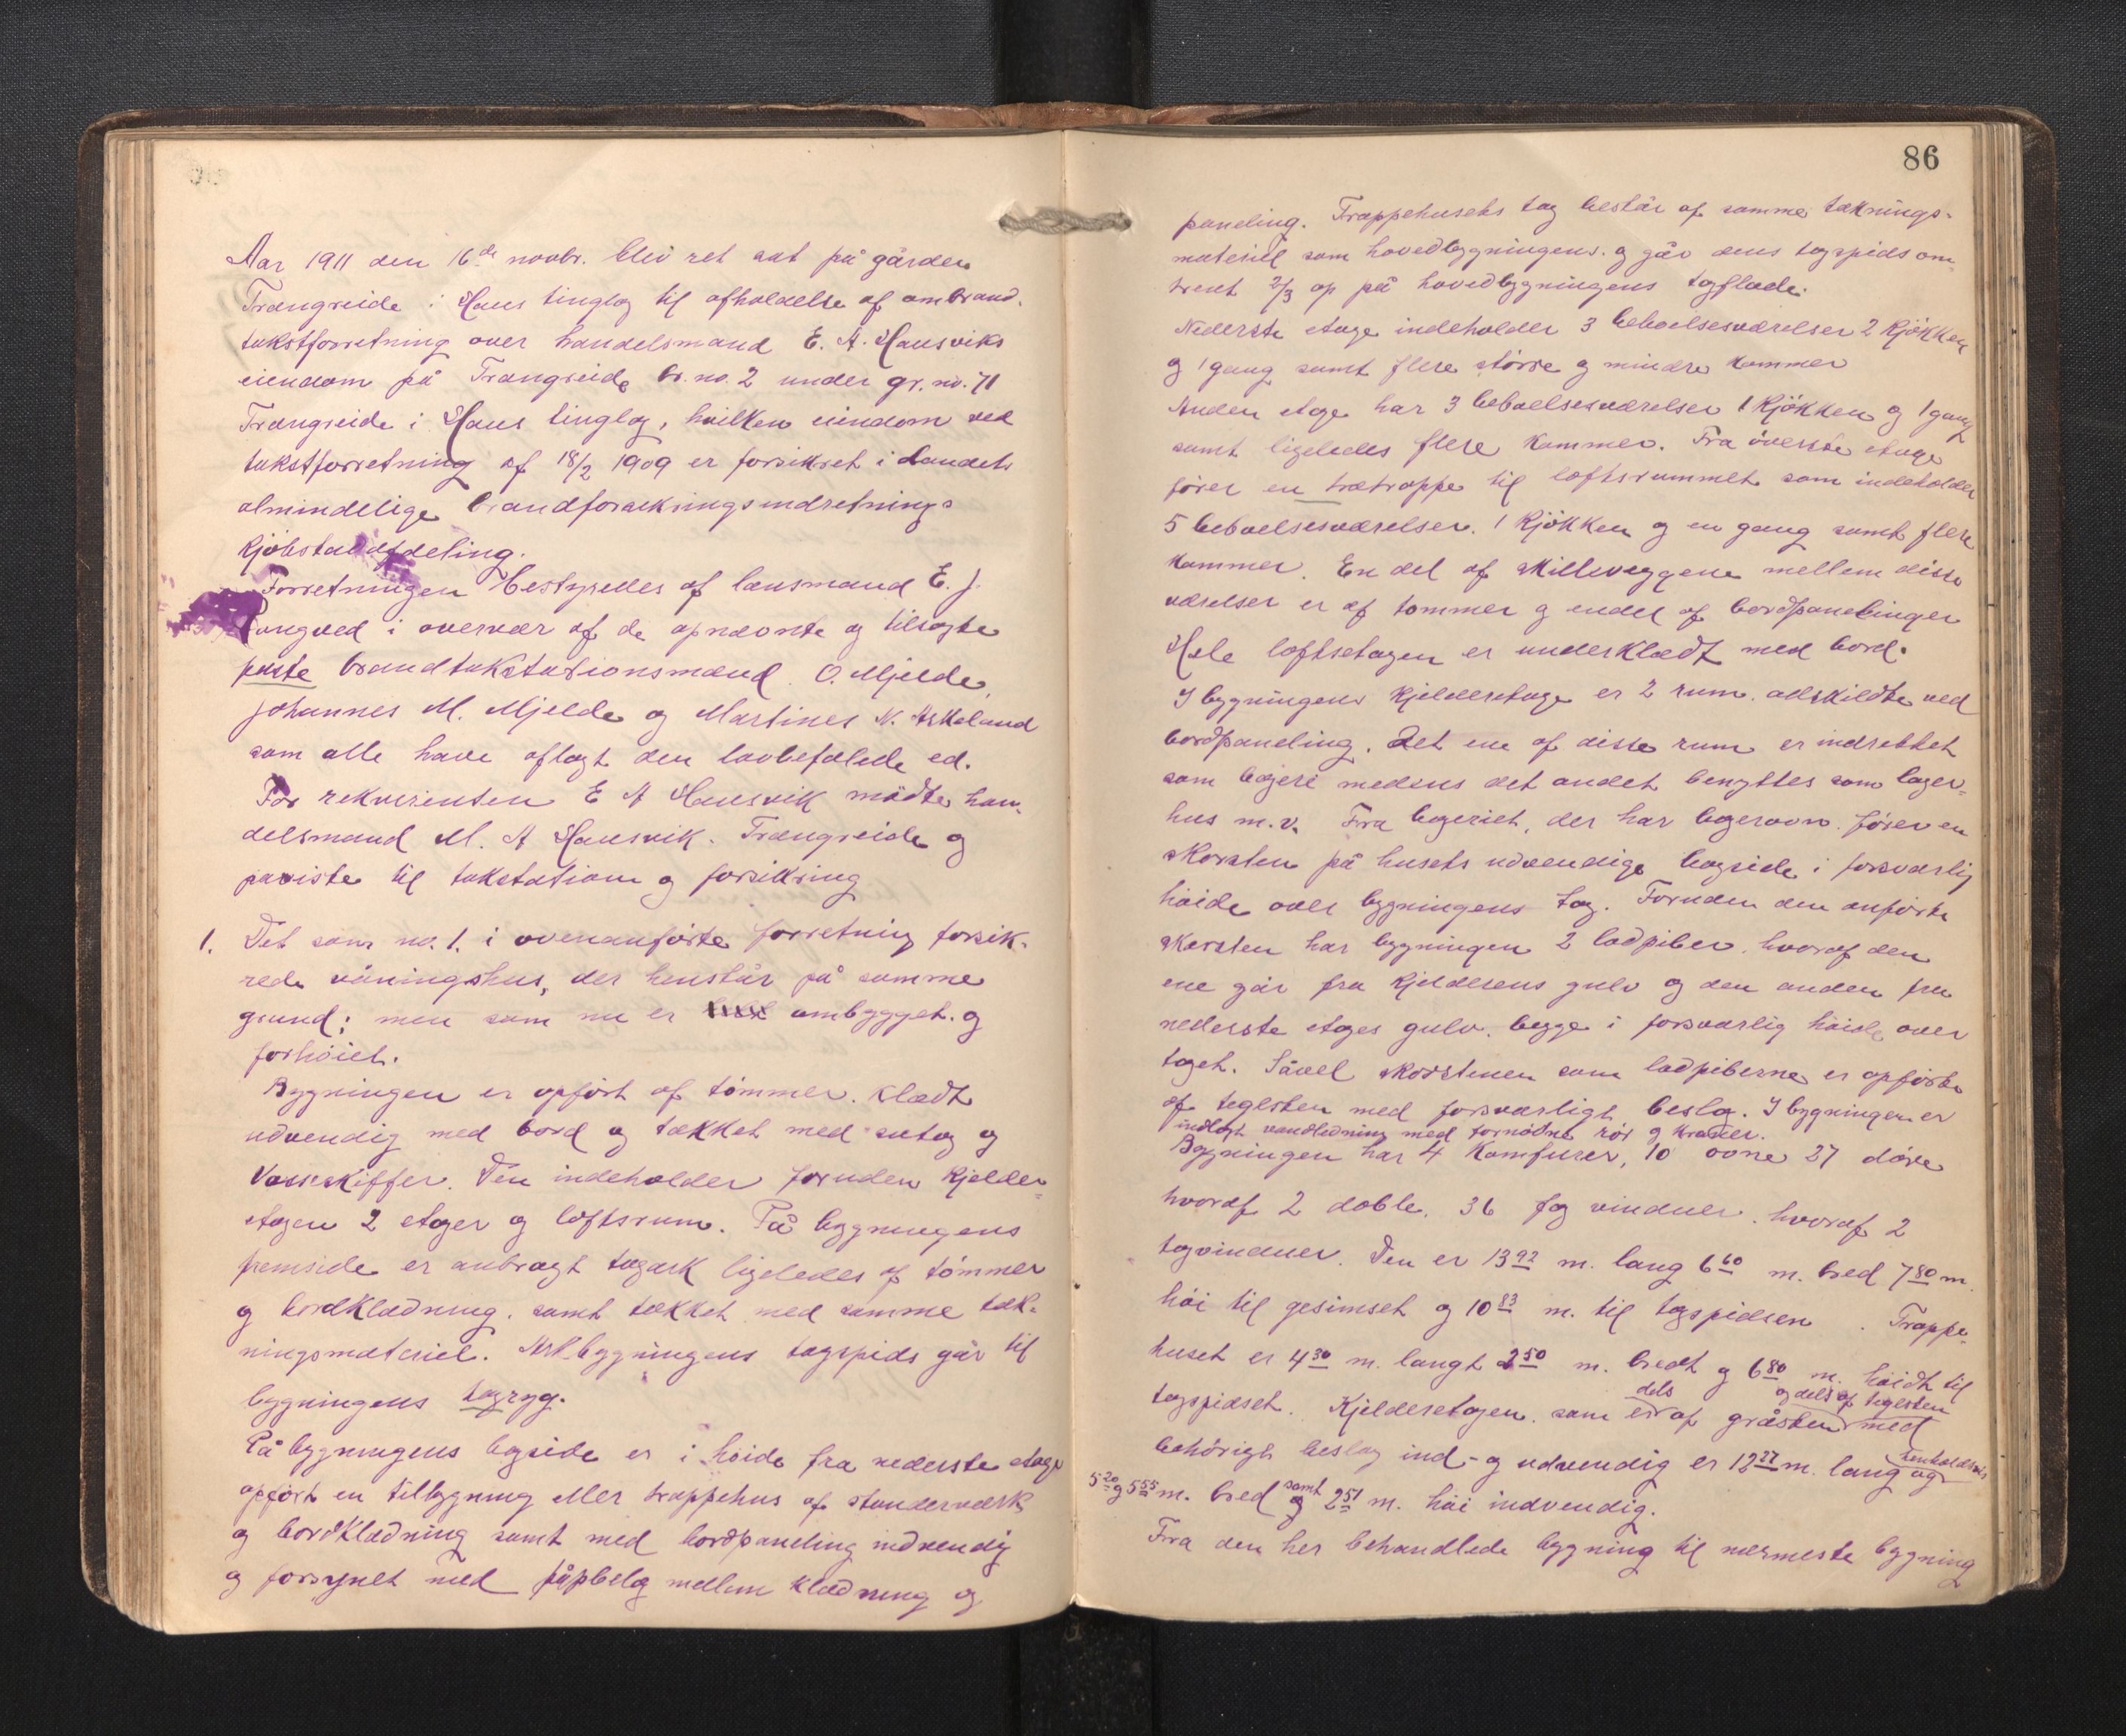 Aar 1911 den 16de novbr. blev ret sat på gården
Trengreide i Haus tinglag til afholdelse af ombrand-
takstforretning over handelsmand E. A. Hausviks
eiendom på Trengreide br. no. 2 under gr. no. 71
Trengreide i Haus tinglag, hvilken eiendom ved
takstforretning af 18/2 1909 er forsikret i Landets
almindelige brandforsikringsindretnings
kjøbstadafdeling.
Forretningen bestyredes af lensmand E. J.
Langved i overvær af de opnævnte og tilsagte
faste brandtakstationsmænd O. Mjelde,
Johannes M. Mjelde og Martines N. Askeland
som alle have aflagt den lovbefalede ed.
For rekvirenten E A Hausvik mødte han-
delsmand M. A Hausvik. Trengreide og
paviste til takstation og forsikring
1. Det som no. 1. i ovenanførte forretning forsik-
rede våningshus, der henstår på samme
grund; men som nu er ombygget og
forhøiet.
Bygningen er opført af tømmer. klædt
udvendig med bord og tækket med sutag og
Vosseskiffer. Den indeholder foruden kjelder-
etagen 2 etager og loftsrum. På bygningens
fremside er anbragt tagark ligeledes af tømmer
og bordklædning. samt tækket med samme tæk-
ningsmateriel. Arkbygningens tagspids går til
bygningens tagryg.
På bygningens bagside er i høide fra nederste etage
opført en tilbygning eller trappehus af stenderverk
og bordklædning samt med bordpaneling indvendig
og forsynet med papbelæg mellem klædning og
86
paneling. Trappehusets tag består af samme tæknings-
materiel som hovedbygningens. og går dens tagspids om
trent 2/3 op på hovedbygningens tagflade.
Nederste etage indeholder 3 beboelsesværelser 2 kjøkken
og 1 gang samt flere større og mindre kammer
Anden etage har 3 beboelsesværelser 1 kjøkken og 1 gang
samt ligeledes flere kammer. Fra øverste etage
fører en trætrappe til loftsrummet som indeholder
5 beboelsesværelser. 1 kjøkken og en gang samt flere
kammer. En del af skilleveggene mellem disse
værelser er af tømmer og endel af bordpanelinger
Hele loftsetagen er underklædt med bord.
I bygningens kjelderetage er 2 rum. adskildte ved
bordpaneling. Det ene af disse rum er indrettet
som bageri medens det andet benyttes som lager-
hus m.v. Fra bageriet, der har bagerovn. fører en
skorsten på husets udvendige bagside i forsvarlig
høide over bygningens tag. Foruden den anførte
skorsten har bygningen 2 ladpiber. hvoraf den
ene går fra kjelderens gulv og den anden fra
nederste etages gulv. begge i forsvarlig høide over
taget. Såvel skorstenen som ladpiberne er opførte
af teglsten med forsvarligt beslag. I bygningen er
indlagt vandledning med fornødne rør og kraner.
Bygningen har 4 Komfurer, 10 ovne 27 døre
hvoraf 2 doble. 36 fag vinduer. hvoraf 2
tagvinduer. Den er 13 92 m. lang 6 60 m. bred 7 80 m
høi til gesimset og 10 83 m. til tagspidsen. Trappe-
huset er 4 30 m. langt 2 50 m. bredt og 6 80 m. høidt til
tagspidset. Kjelderetagen. som er dels af gråsten og dels af teglsten med
behørigt beslag ind- og udvendig er 12 27 m. lang og henholdsvis
5 20 og 5 55 m. bred samt 2 51 m. høi indvendig.
Fra den her behandlede bygning til nærmeste bygning